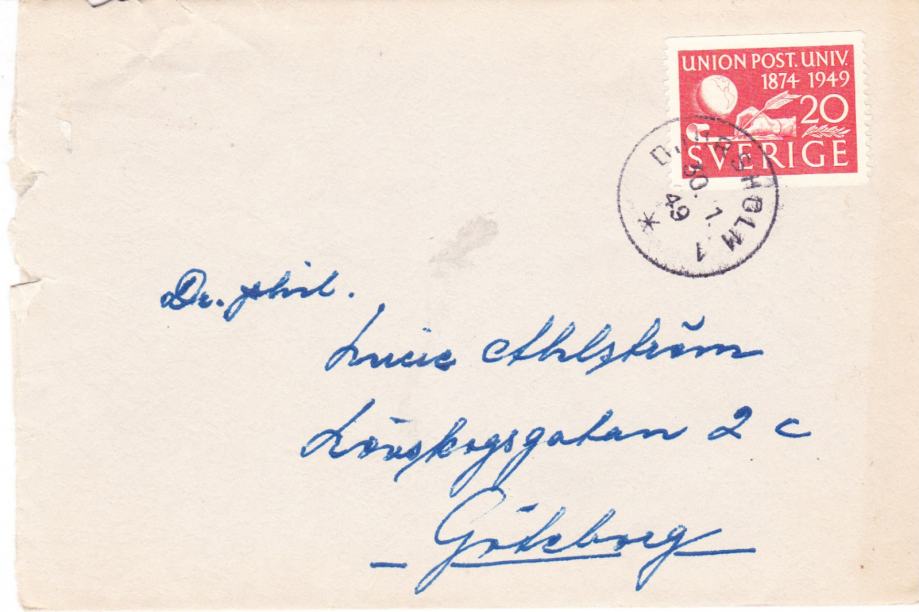 UNION POST. UNIV.
1874 1949
20
SVERIGE
DJURSHOLM 1
30. 7.
49
Dr. phil.
Lucie Ahlström
Lövskogsgatan 2 c
Göteborg